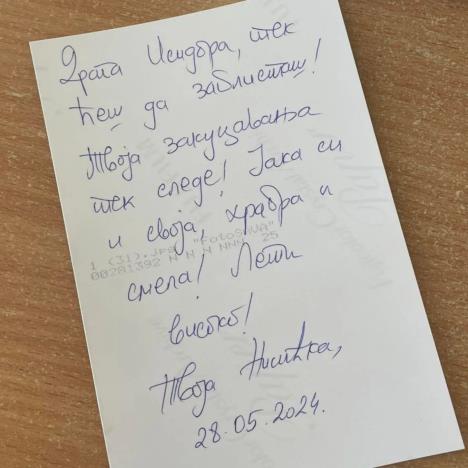 Драга Исидора, тек
ћеш да заблисташ!
Твоја закуцавања
тек следе! Јака си
и своја, храбра и
1 (31).jpg "FotoSAVA"
00281392 N N N NNN 25
смела! Лети
високо!
Твоја
28.05.2024.